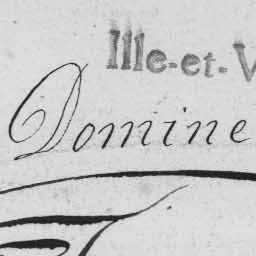 Ille-et-V
Domine